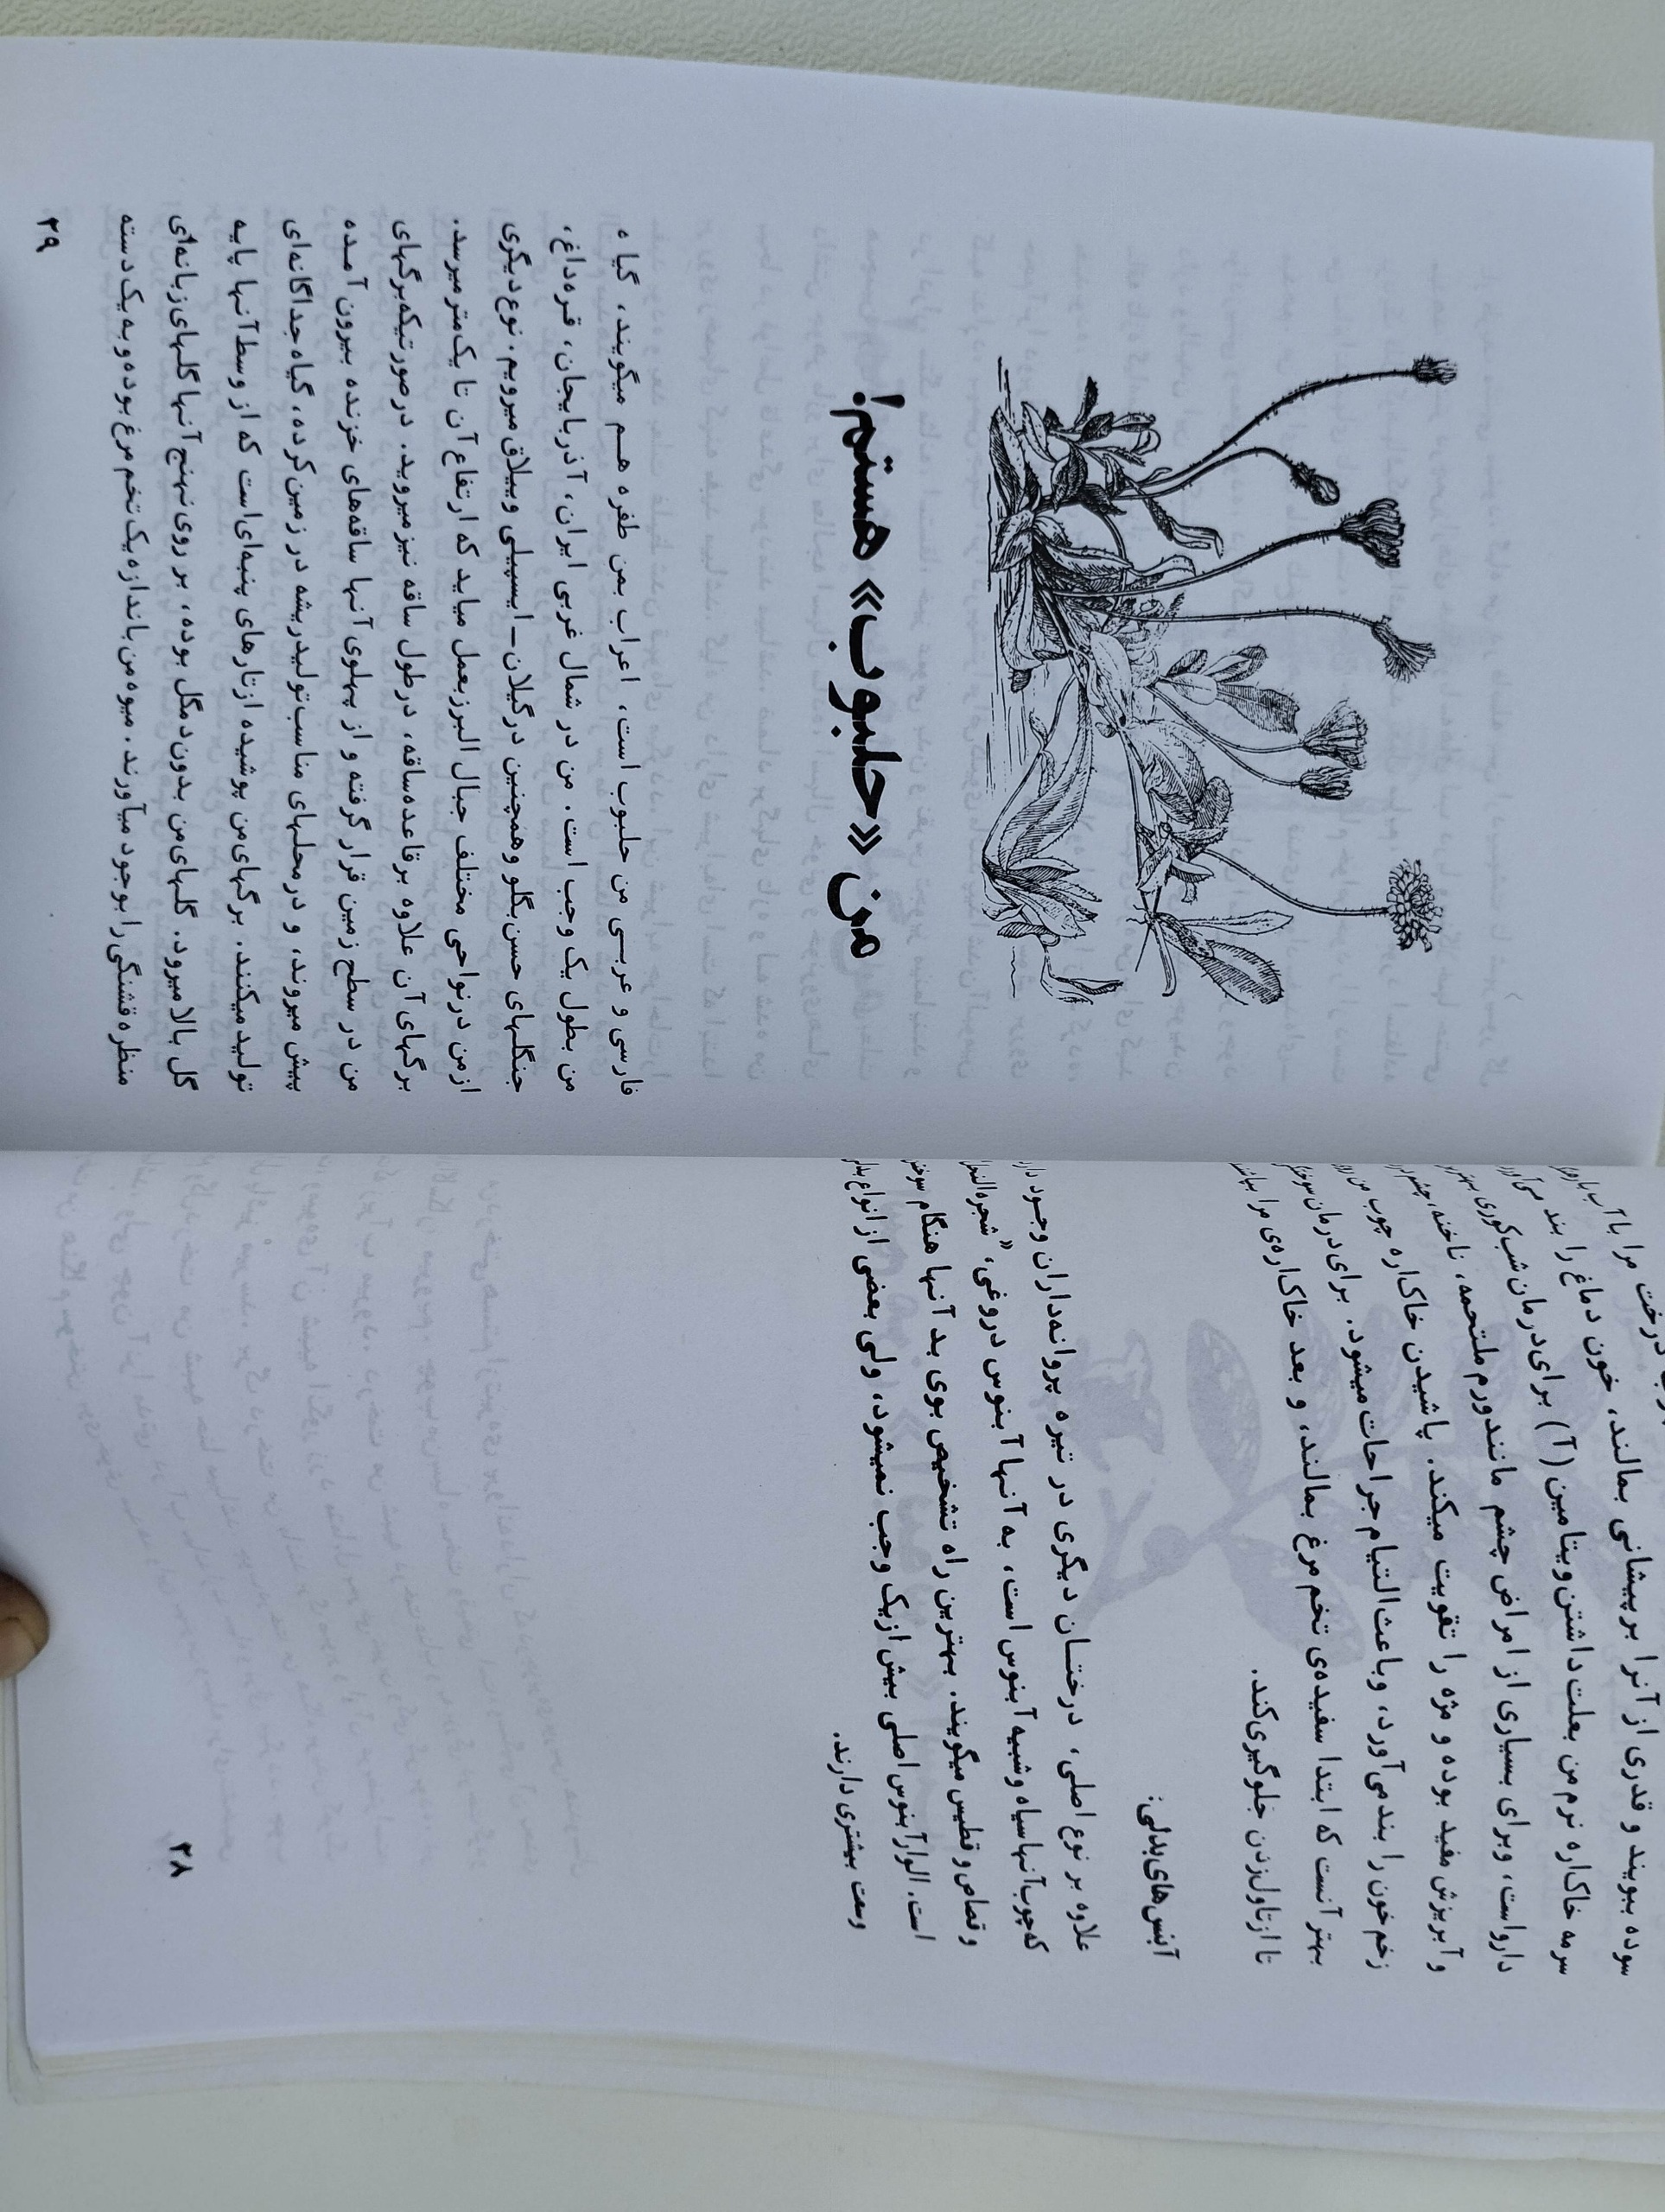 درخت مرا با آب
سوده ببویند و قدری از آنرا بر پیشانی بمالند، خون دماغ را بند
سرمه خاکاره نرم من بعلت داشتن ویتامین (آ) برای درمان شب‌کوری
دارو است، و برای بسیاری از امراض چشم مانند ورم ملتحمه، ناخنه،
و آبریزش مفید بوده و مژه را تقویت میکند. پاشیدن خاکاره چوب من
زخم خون را بند می‌آورد، و باعث التیام جراحات میشود. برای درمان
بهتر آنست که ابتدا سفیده‌ی تخم مرغ بمالند، و بعد خاکاره‌ی مرا
تا از تاول زدن جلوگیری کند.
آبنس‌های بدلی:
علاوه بر نوع اصلی، درختان دیگری در تیره پروانه‌داران وجود
که چوب آنها سیاه و شبیه آبنوس است، به آنها آبنوس دروغی، "شجره
و قصاص و قطیس میگویند. بهترین راه تشخیص بوی بد آنها هنگام
است. الوار آبنوس اصلی بیش از یک وجب نمیشود، ولی بعضی از انواع
وسعت بیشتری دارند.
۲۸
من «حلبوب» هستم!
فارسی و عربی من حلبوب است، اعراب بمن طفره هم میگویند، گیاه
من بطول یک وجب است. من در شمال غربی ایران، آذربایجان، قره‌داغ،
جنگلهای حسن بگلو و همچنین در گیلان – ایسپیلی و ییلاق میرویم. نوع دیگری
از من در نواحی مختلف جبال البرز بعمل میاید که ارتفاع آن تا یک متر میرسد.
برگهای آن علاوه بر قاعده ساقه، در طول ساقه نیز میروید. در صورتیکه برگهای
من در سطح زمین قرار گرفته و از پهلوی آنها ساقه‌های خزنده بیرون آمده
پیش میروند، و در محلهای مناسب تولید ریشه در زمین کرده، گیاه جداگانه‌ای
تولید میکنند. برگهای من پوشیده از تارهای پنبه‌ای است که از وسط آنها پایه
گل بالا میرود. گلهای من بدون دمگل بوده، بر روی نهنج آنها گلهای زبانه‌ای
منظره قشنگی را بوجود میآورند. میوه من باندازه یک تخم مرغ بوده و به یک دسته
۲۹